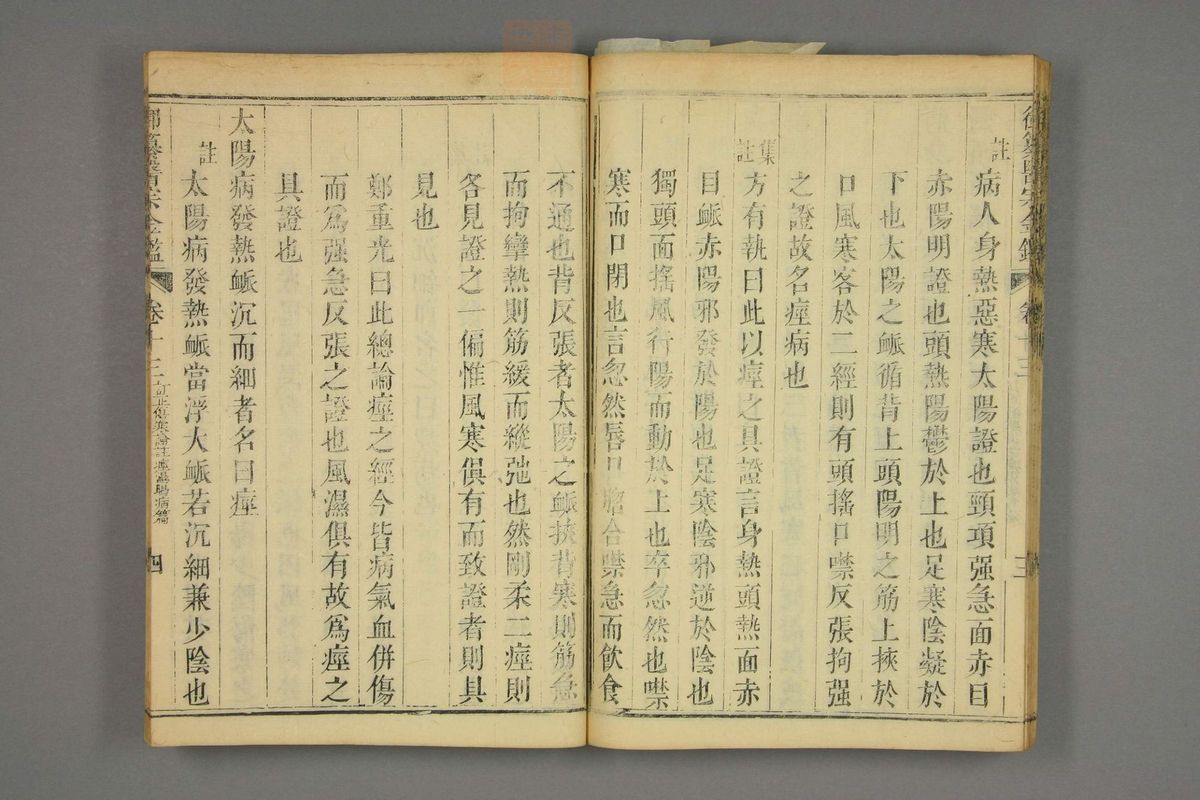 御纂醫宗金鑑 卷十三 三
註
病人身熱惡寒太陽證也頸項强急面赤目
赤陽明證也頭熱陽鬱於上也足寒陰凝於
下也太陽之脈循背上頭陽明之筋上挾於
口風寒客於二經則有頭搖口噤反張拘强
之證故名痙病也
集註
方有執曰此以痙之具證言身熱頭熱面赤
目脈赤陽邪發於陽也足寒陰邪逆於陰也
獨頭面搖風行陽而動於上也卒忽然也噤
寒而口閉也言忽然唇口吻合噤急而飲食
不通也背反張者太陽之脈挾背寒則筋急
而拘攣熱則筋緩而縱弛也然剛柔二痙則
各見證之一偏惟風寒俱有而致證者則具
見也
鄭重光曰此總論痙之經今皆病氣血併傷
而爲强急反張之證也風濕俱有故爲痙之
具證也
太陽病發熱脈沉而細者名曰痙
註
太陽病發熱脈當浮大脈若沉細兼少陰也
御纂醫宗金鑑 卷十三 訂正傷寒論註痙濕暍病篇 四